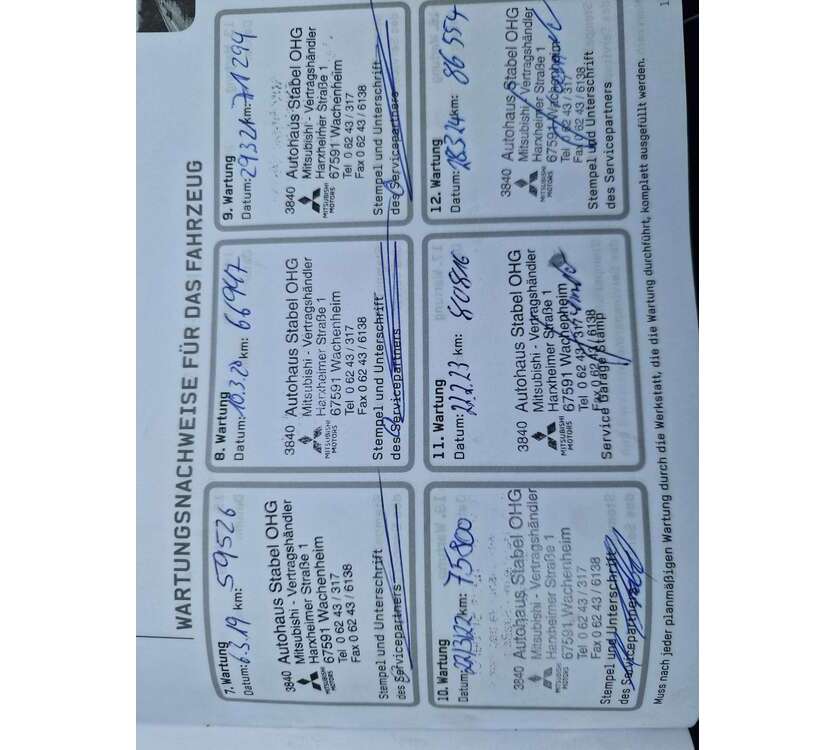 WARTUNGSNACHWEISE FÜR DAS FAHRZEUG
7. Wartung
Datum: 6.3.19 km: 59526
3840 Autohaus Stabel OHG
Mitsubishi - Vertragshändler
Harxheimer Straße 1
67591 Wachenheim
Tel 0 62 43 / 317
Fax 0 62 43 / 6138
MITSUBISHI
MOTORS
Stempel und Unterschrift
des Servicepartners
8. Wartung
Datum: 10.3.20 km: 66947
3840 Autohaus Stabel OHG
Mitsubishi - Vertragshändler
Harxheimer Straße 1
67591 Wachenheim
Tel 0 62 43 / 317
Fax 0 62 43 / 6138
MITSUBISHI
MOTORS
Stempel und Unterschrift
des Servicepartners
9. Wartung
Datum: 29.3.21 km: 71299
3840 Autohaus Stabel OHG
Mitsubishi - Vertragshändler
Harxheimer Straße 1
67591 Wachenheim
Tel 0 62 43 / 317
Fax 0 62 43 / 6138
MITSUBISHI
MOTORS
Stempel und Unterschrift
des Servicepartners
10. Wartung
Datum: km: 75800
3840 Autohaus Stabel OHG
Mitsubishi - Vertragshändler
Harxheimer Straße 1
67591 Wachenheim
Tel 0 62 43 / 317
Fax 0 62 43 / 6138
MITSUBISHI
MOTORS
Stempel und Unterschrift
des Servicepartners
11. Wartung
Datum: km: 80816
3840 Autohaus Stabel OHG
Mitsubishi - Vertragshändler
Harxheimer Straße 1
67591 Wachenheim
Tel 0 62 43 / 317
Fax 0 62 43 / 6138
MITSUBISHI
MOTORS
Service Garage Stamp
12. Wartung
Datum: 18.3.24 km: 86554
3840 Autohaus Stabel OHG
Mitsubishi - Vertragshändler
Harxheimer Straße 1
67591 Wachenheim
Tel 0 62 43 / 317
Fax 0 62 43 / 6138
MITSUBISHI
MOTORS
Stempel und Unterschrift
des Servicepartners
Muss nach jeder planmäßigen Wartung durch die Werkstatt, die die Wartung durchführt, komplett ausgefüllt werden.